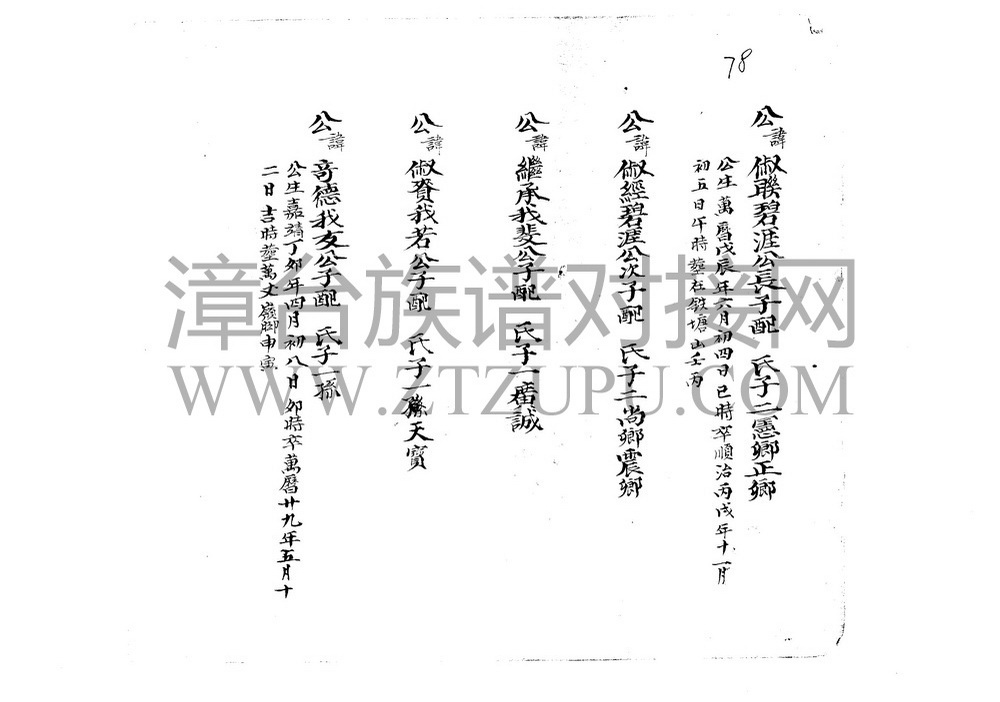 78
公諱俶聯碧涯公長子配 氏子二憲鄉正鄉
公生萬曆戊辰年六月初四日巳時卒順治丙戌年十一月
初五日午時葬在鐵塘山壬丙
公諱俶經碧涯公次子配 氏子二尚鄉震鄉
公諱繼承我斐公子配 氏子一 誠
公諱俶賚我若公子配 氏子一勝天寶
公諱奇德我友公子配 氏子一
公生嘉靖丁卯年四月初八日卯時卒萬曆廿九年五月十
二日吉時葬萬丈嶺腳申寅
漳台族谱对接网
WWW.ZTZUPU.COM